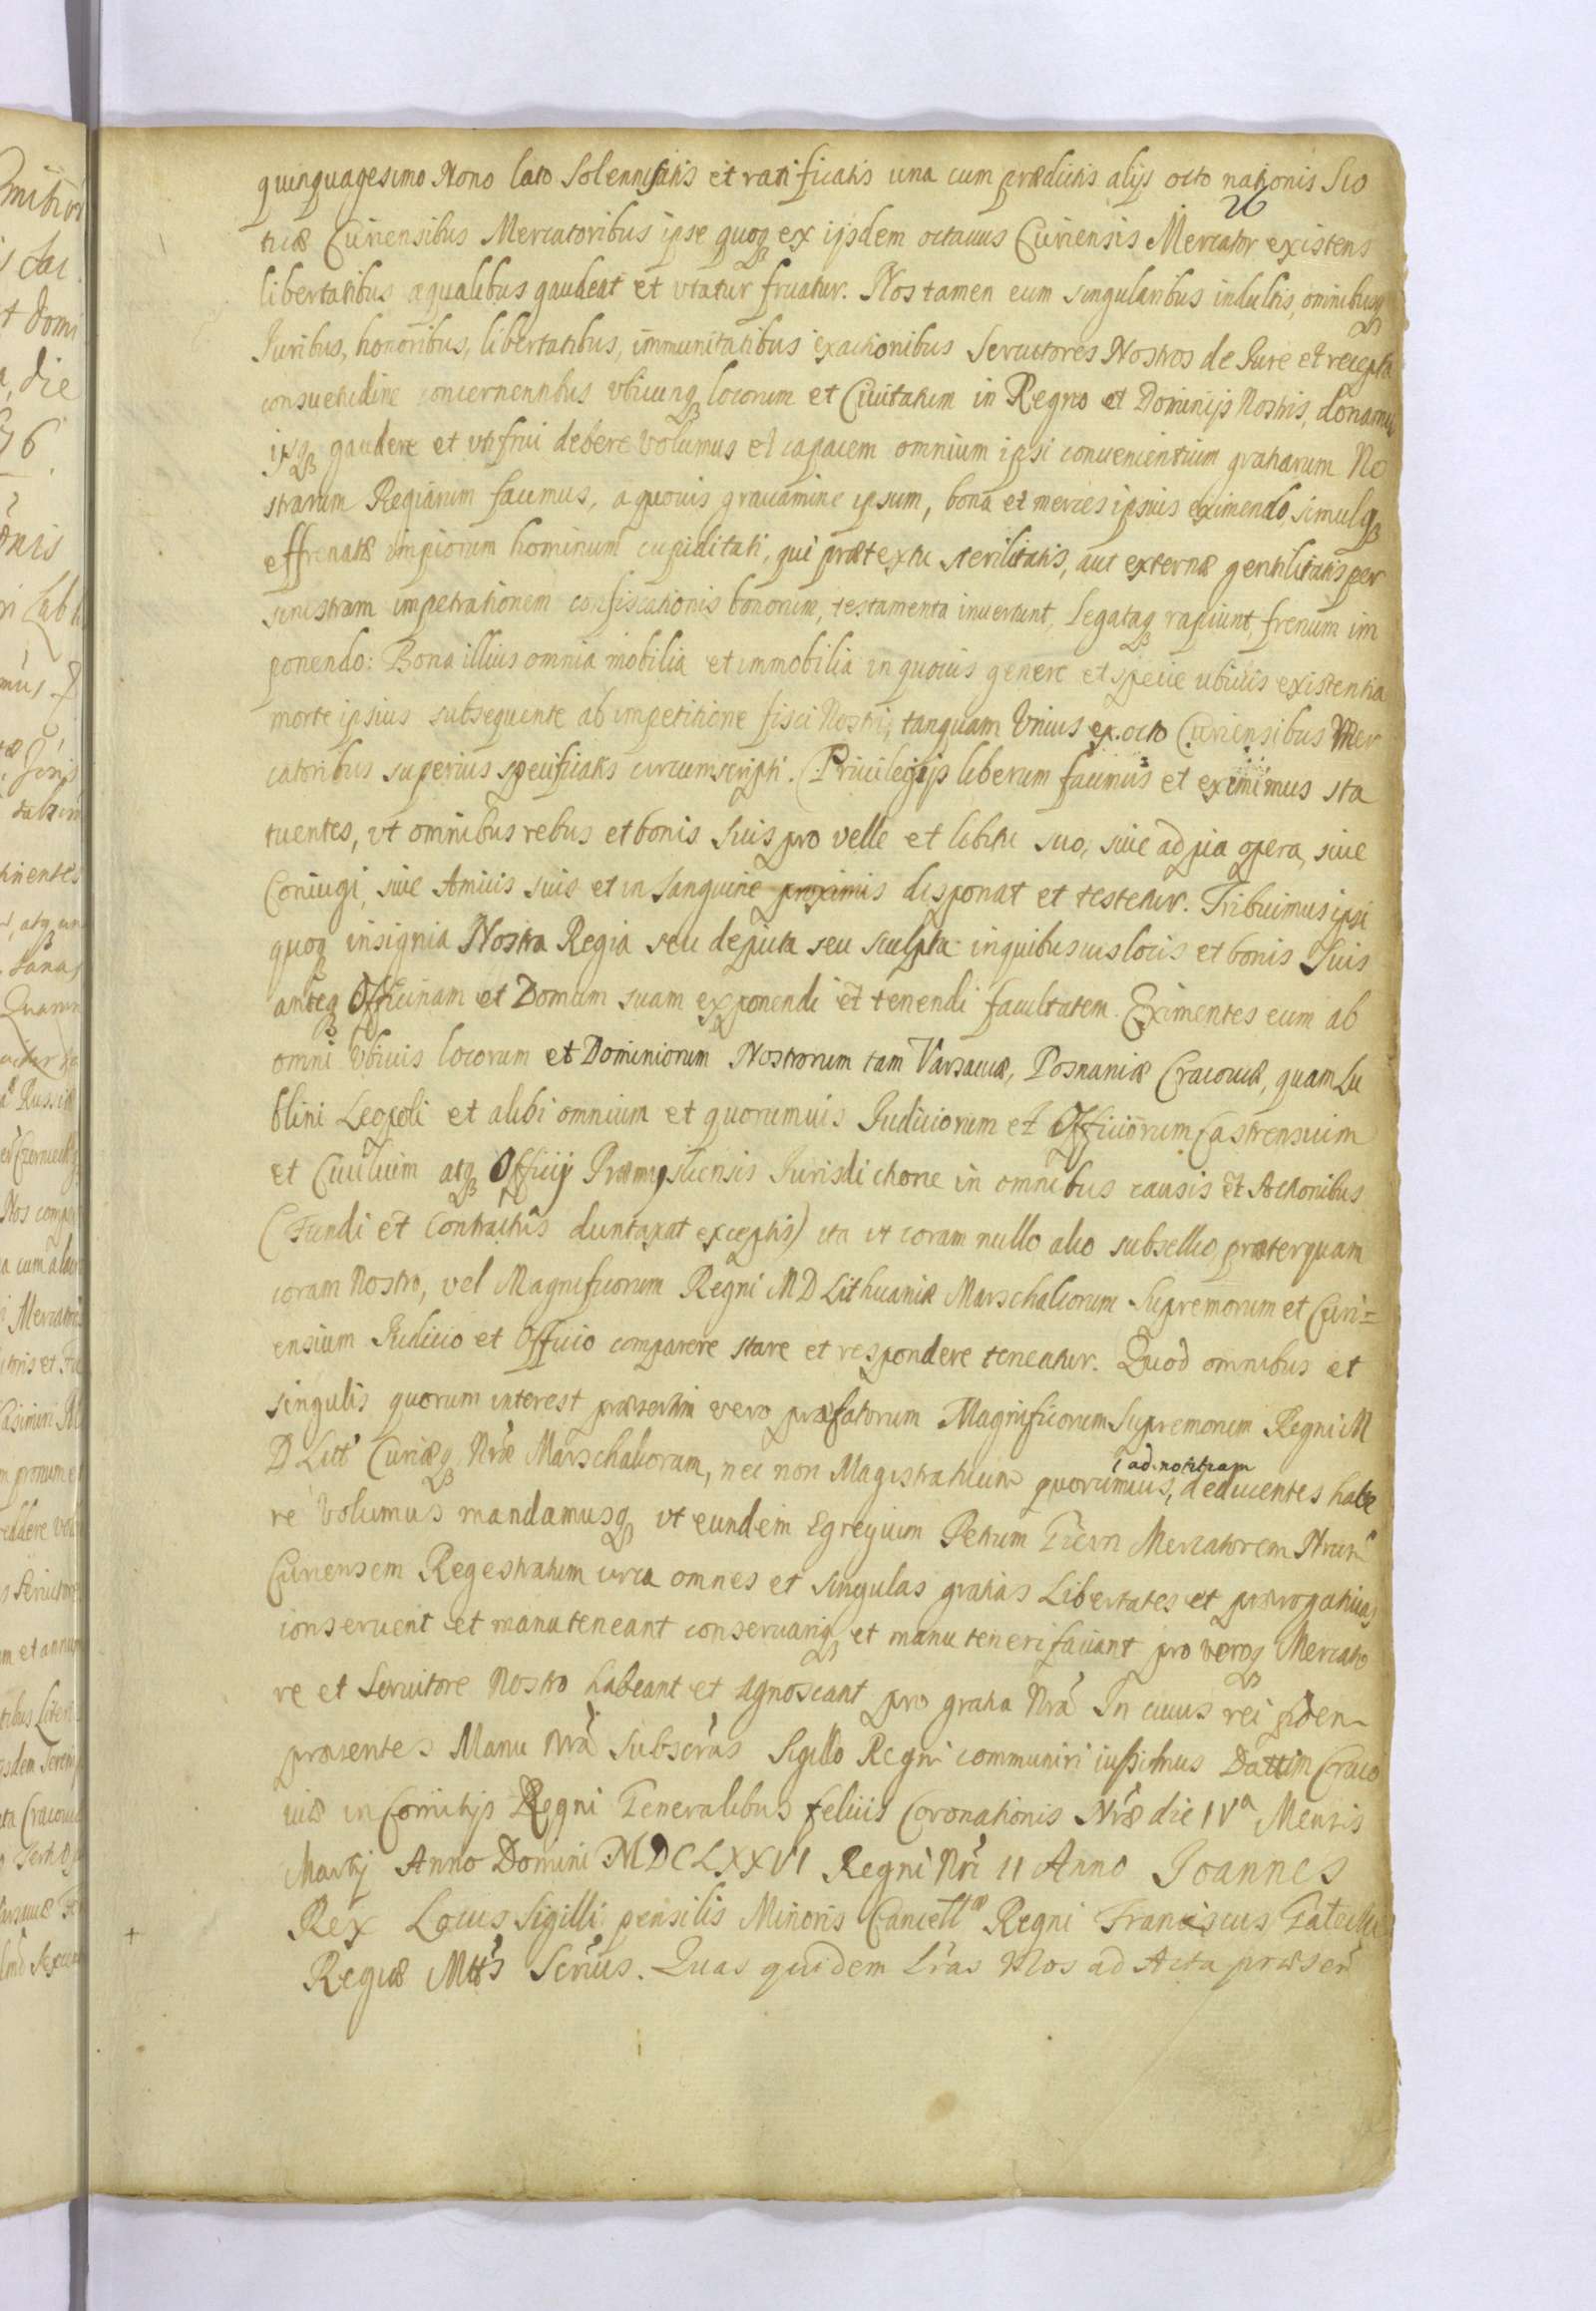 quinquagesimo Nono lato Solennisatis et ratificatis una cum prædictis alijs octo nationis Sco
26
ticæ Curiensibus Mercatoribus ipse quoq ex ijsdem octauus Curiensis Mercator existens
libertatibus æqualibus gaudeat et vtatur fruatur. Nos tamen eum singularibus indultis, omnibusq
Iuribus, honoribus, libertatibus, immunitatibus exactionibus Seruitores Nostros de Iure et recepta
consuetudine concernentibus vbicunq locorum et Ciuitatum in Regno et Dominijs Nostris, donamus
ijsq gaudere et vti frui debere volumus et capacem omnium ipsi conuenientium gratiarum No
strarum Regiarum facimus, a quouis grauamine ipsum, bona et merces ipsius eximendo, simulq
effrenatæ impiorum hominum cupiditati, qui prætextu sterilitatis, aut externæ gentilitatis per
sinistram impetrationem confiscationis bonorum, testamenta inuertunt, Legataq rapiunt, frenum im
ponendo: Bona illius omnia mobilia et immobilia in quouis genere et specie ubiuis existentia
morte ipsius subsequente ab impetitione fisci Nostri, tanquam Vnius ex octo Curiensibus Mer
catoribus superius specificatis circumscripti. Priuilegijs liberum facimus et eximimus sta
tuentes, vt omnibus rebus et bonis Suis pro velle et libitu suo, siue ad pia opera, siue
Coniugi, siue Amicis suis et in Sanguine proximis disponat et testetur. Tribuimus ipsi
quoq insignia Nostra Regia seu depicta seu sculpta in quibusuis locis et bonis Suis
anteq Officinam et Domum suam exponendi et tenendi facultatem. Eximentes eum ab
omni Vbiuis locorum et Dominiorum Nostrorum tam Varsauiæ, Posnaniæ Cracouiæ, quam Lu
blini Leopoli et alibi omnium et quorumuis Iudiciorum et Officiorum Castrensium
et Ciuilium atq Officij Præmisliensis Iurisdictione in omnibus causis et Actionibus
(Fundi et Contractus duntaxat exceptis) ita vt coram nullo alio subsellio, præterquam
coram Nostro, vel Magnificorum Regni M D Lithuaniæ Marschalcorum Supremorum et Curi=
ensium Iudicio et Officio comparere stare et respondere teneatur. Quod omnibus et
singulis quorum interest præsertim vero præfatorum Magnificorum Supremorum Regni M
D Litt Curiæq Nræ Marschalcorum, nec non Magistratuum quorumuis, ad notitiam deducentes habe
re Volumus mandamusq vt eundem Egregium Petrum Tiern Mercatorem Nrum
Curiensem Regestratum circa omnes et singulas gratias Libertates et prærogatiuas
conseruent et manuteneant conseruariq et manuteneri faciant pro veroq Mercato
re et Seruitore Nostro habeant et agnoscant pro gratia Nra In cuius rei fiden
præsentes Manu Nra Subscras Sigillo Regni communiri iussimus Dattum Craco
uiæ in Comitijs Regni Generalibus felicis Coronationis Nræ die IVa Mensis
Martij Anno Domini MDCLXXVI Regni Nri II Anno Joannes
Rex Locus Sigilli pensilis Minoris Cancellæ Regni Franciscus
Regiæ Mttis Scrius. Quas quidem Lras Nos ad Acta præsen